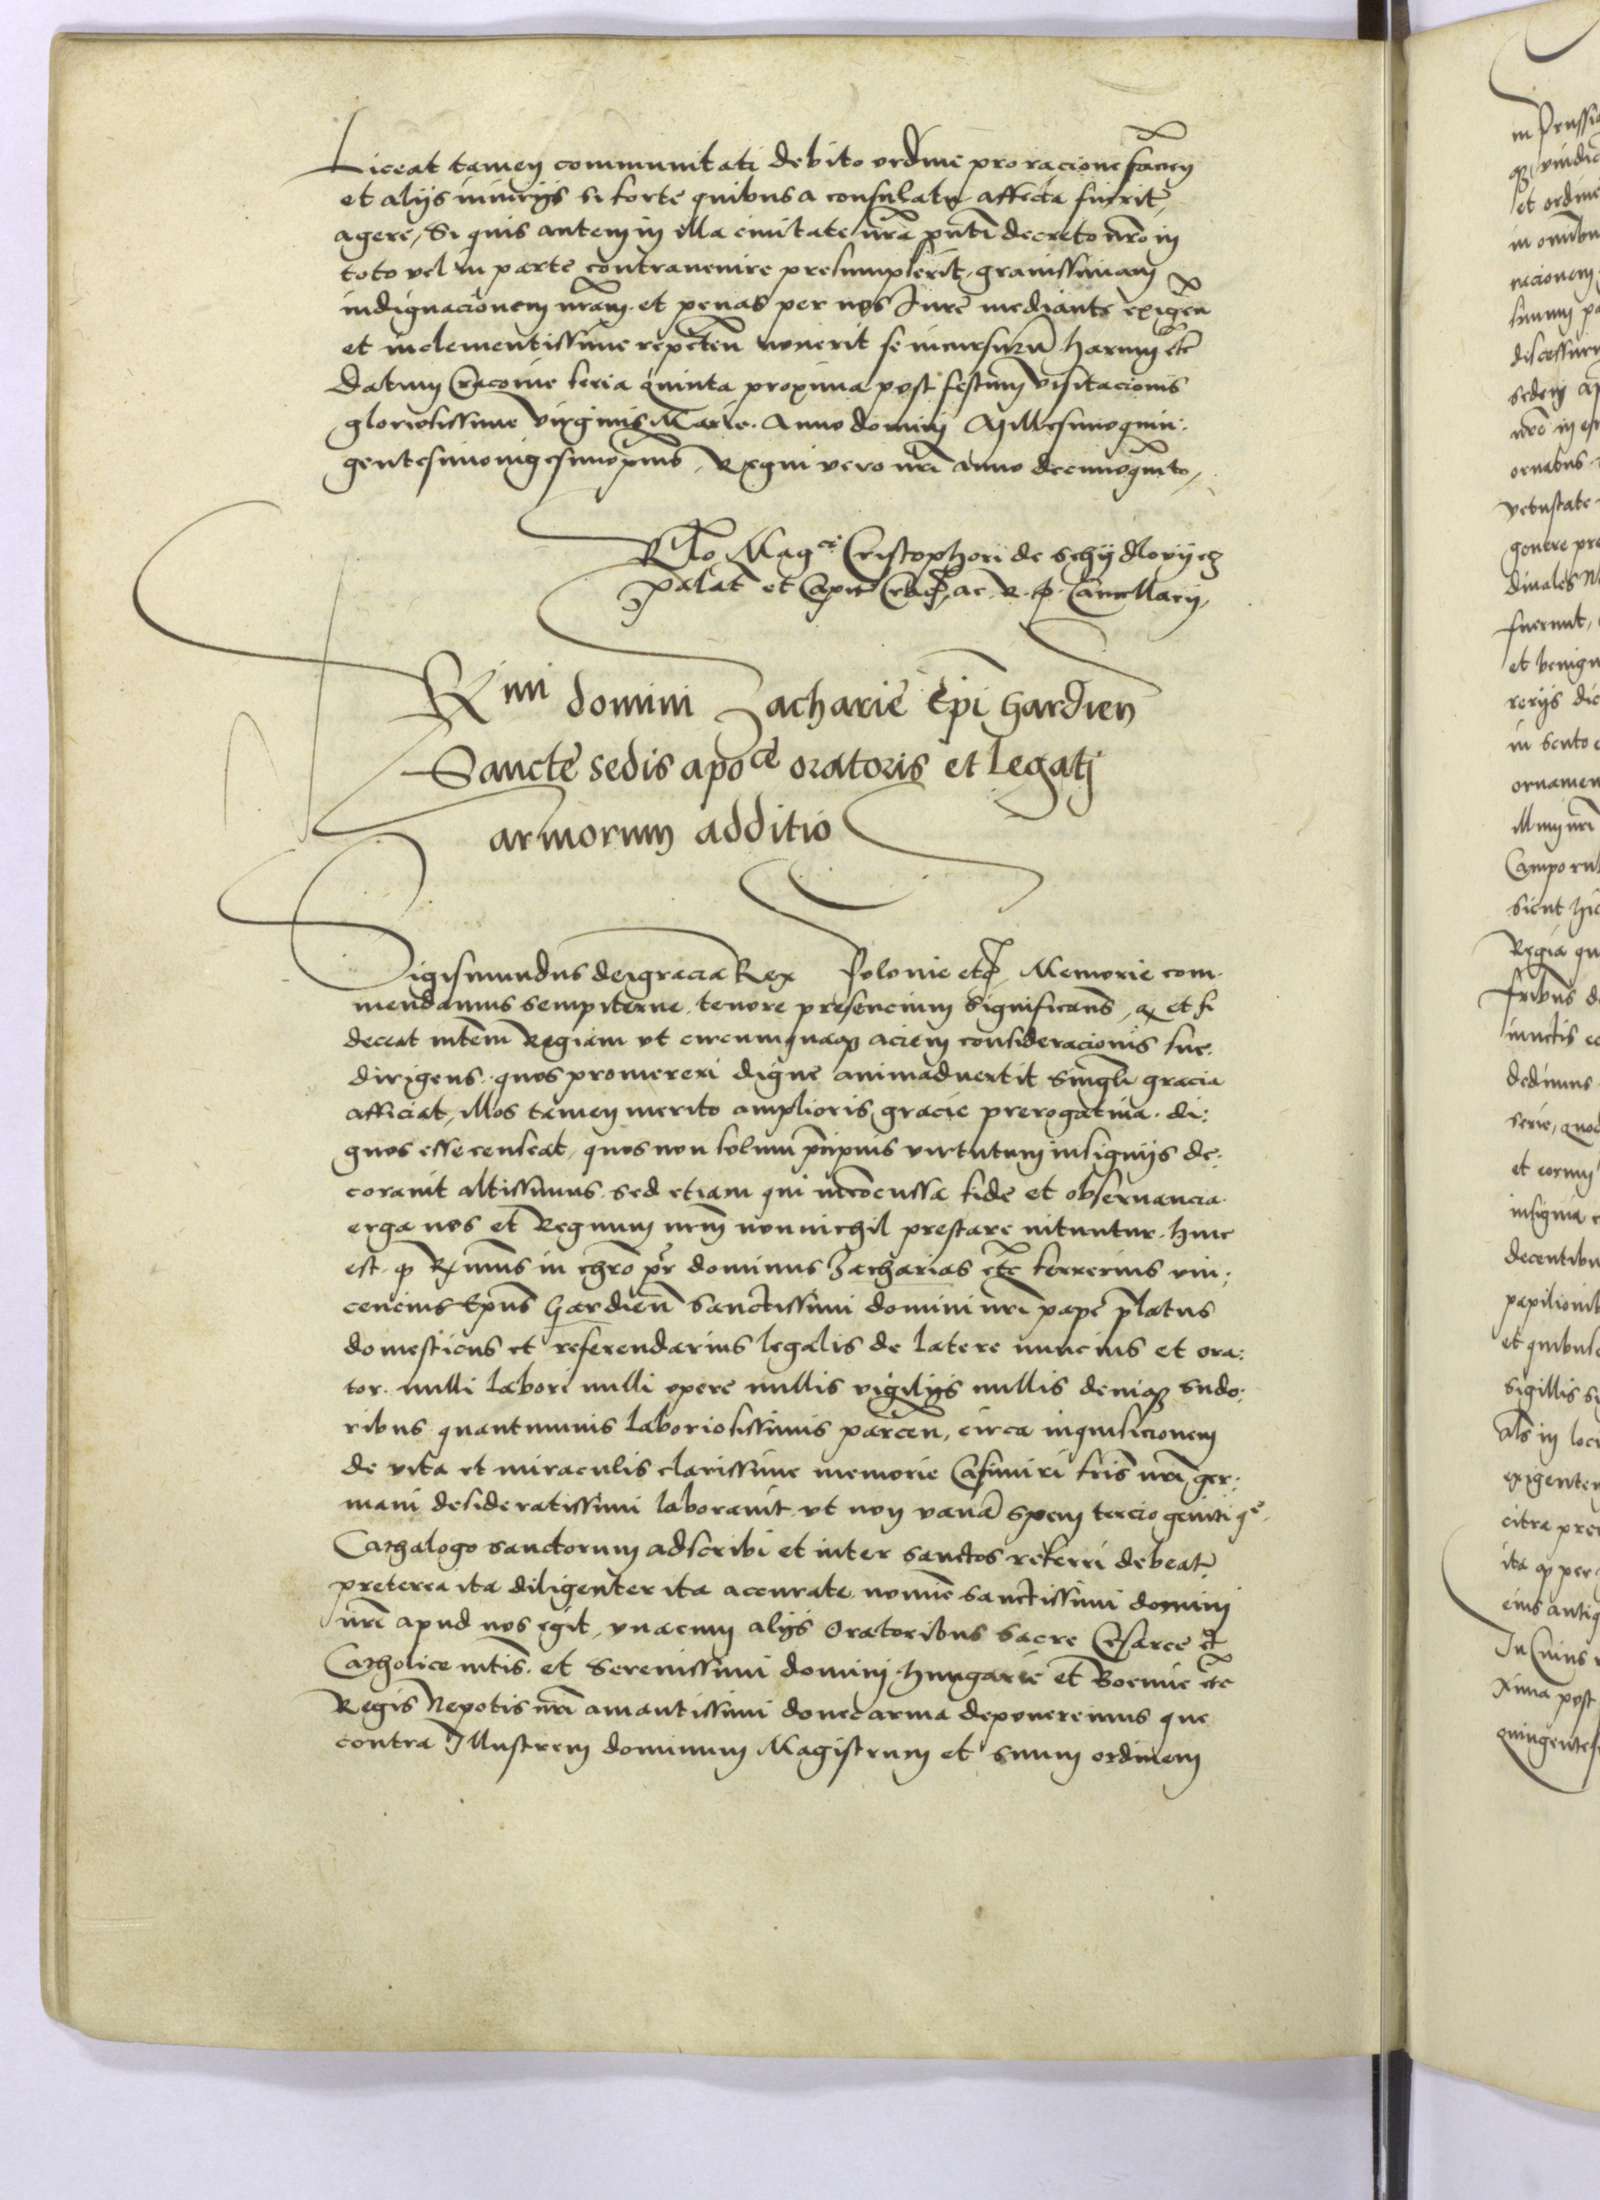 Liceat tamen communitati debito ordine pro racione facien
et alijs iniurijs si forte quibus a consulatu affecta fuerit
agere, Si quis autem in illa ciuitate nra pnti decreto nro in
toto vel in parte contrauenire presumpserit, grauissimam
indignacionem nram et penas per nos Iure mediante exigen
et inclementissime repeten nouerit se incursurum harum etc
Datum Cracouie feria quinta proxima post festum visitacionis
gloriosissime virginis Marie. Anno domini Millesimoquin:
gentesimovigesimoprimo, Regni vero nri anno decimoquinto,
Rlo Magci Cristophori de Schydlovyecz
palat et Capit Crac ac R. P. Cancellarij,
Rmi domini Zacharie Epi Gardien
Sancte sedis apoce oratoris et legatj
armorum additio
Sigismundus dei gracia Rex Polonie etc, Memorie com
mendamus sempiterne, tenore presencium significans, q et si
deceat mtem Regiam ut circumquaq aciem consideracionis sue
dirigens, quos promereri digne animaduertit singli gracia
afficiat, illos tamen merito amplioris gracie prerogatiua di:
gnos esse censeat, quos non solum precipuis virtutum insignijs de:
corauit altissimus, sed etiam qui inconcussa fide et obseruancia
erga nos et Regnum nrm nonnichil prestare nituntur. hinc
est q Rmus in chro pr dominus Zacharias etc ferrerius vin:
cencius Epus Gardien sanctissimi domini nri pape platus
domesticus et referendarius legalis de latere nuncius et ora:
tor nulli labori nulli opere nullis vigilijs nullis deniq sudo:
ribus quantumuis laboriosissimis parcen, circa inquisicionem
de vita et miraculis clarissime memorie Casimiri fris nri ger:
mani desideratissimi laborauit, ut non vana spem tercio geniti
Cathalogo sanctorum adscribi et inter sanctos referri debeat
preterea ita diligenter ita accurate nomine sanctissimi domini
nri apud nos egit, vnacum alijs Oratoribus sacre Cesaree et
Catholice mtis et Serenissimi domini Hungarie et Boemie etc
Regis Nepotis nri amantissimi donec arma deponeremus que
contra Illustrem dominum Magistrum et suum ordinem